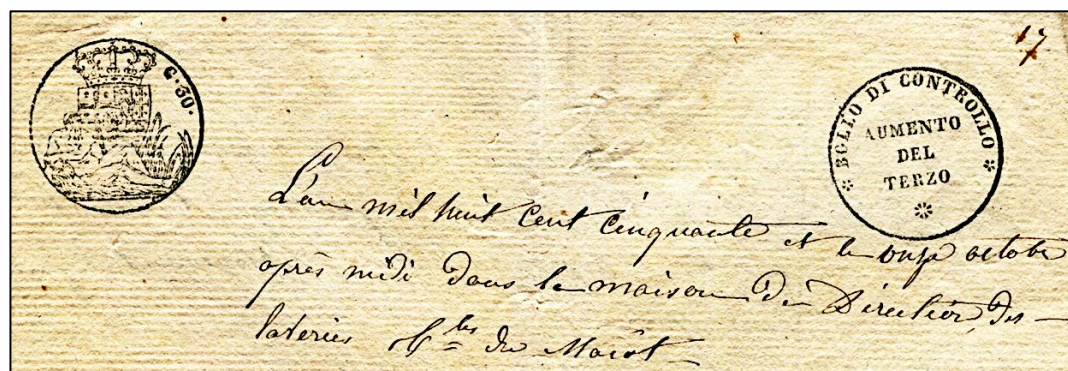 17
C. 30.
BOLLO DI CONTROLLO
AUMENTO
DEL
TERZO
L'an mil huit cent cinquante et le onze octobre
après midi dans la maison du Directeur des